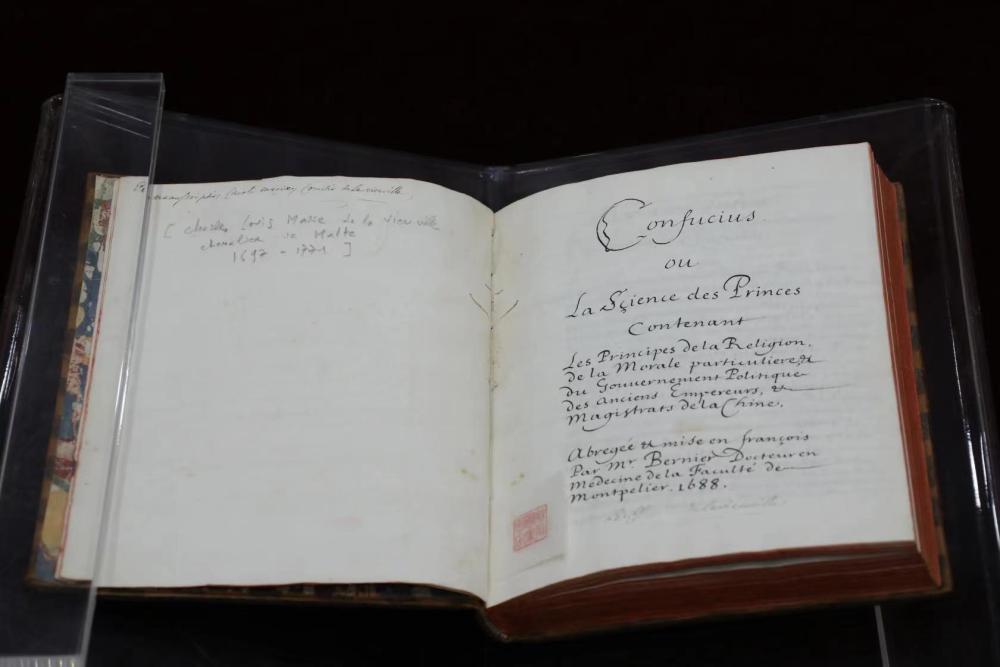 Charles Louis Marie de la Vieuville
chevalier de Malte
1697 - 1771 ]
Confucius
ou
La Sçience des Princes
Contenant
Les Principes de la Religion,
de la Morale particuliere, &
du Gouvernement Politique
des anciens Empereurs, &
Magistrats de la Chine.
Abregée & mise en françois
Par Mr. Bernier Docteur en
Medecine de la Faculté de
Montpelier. 1688.